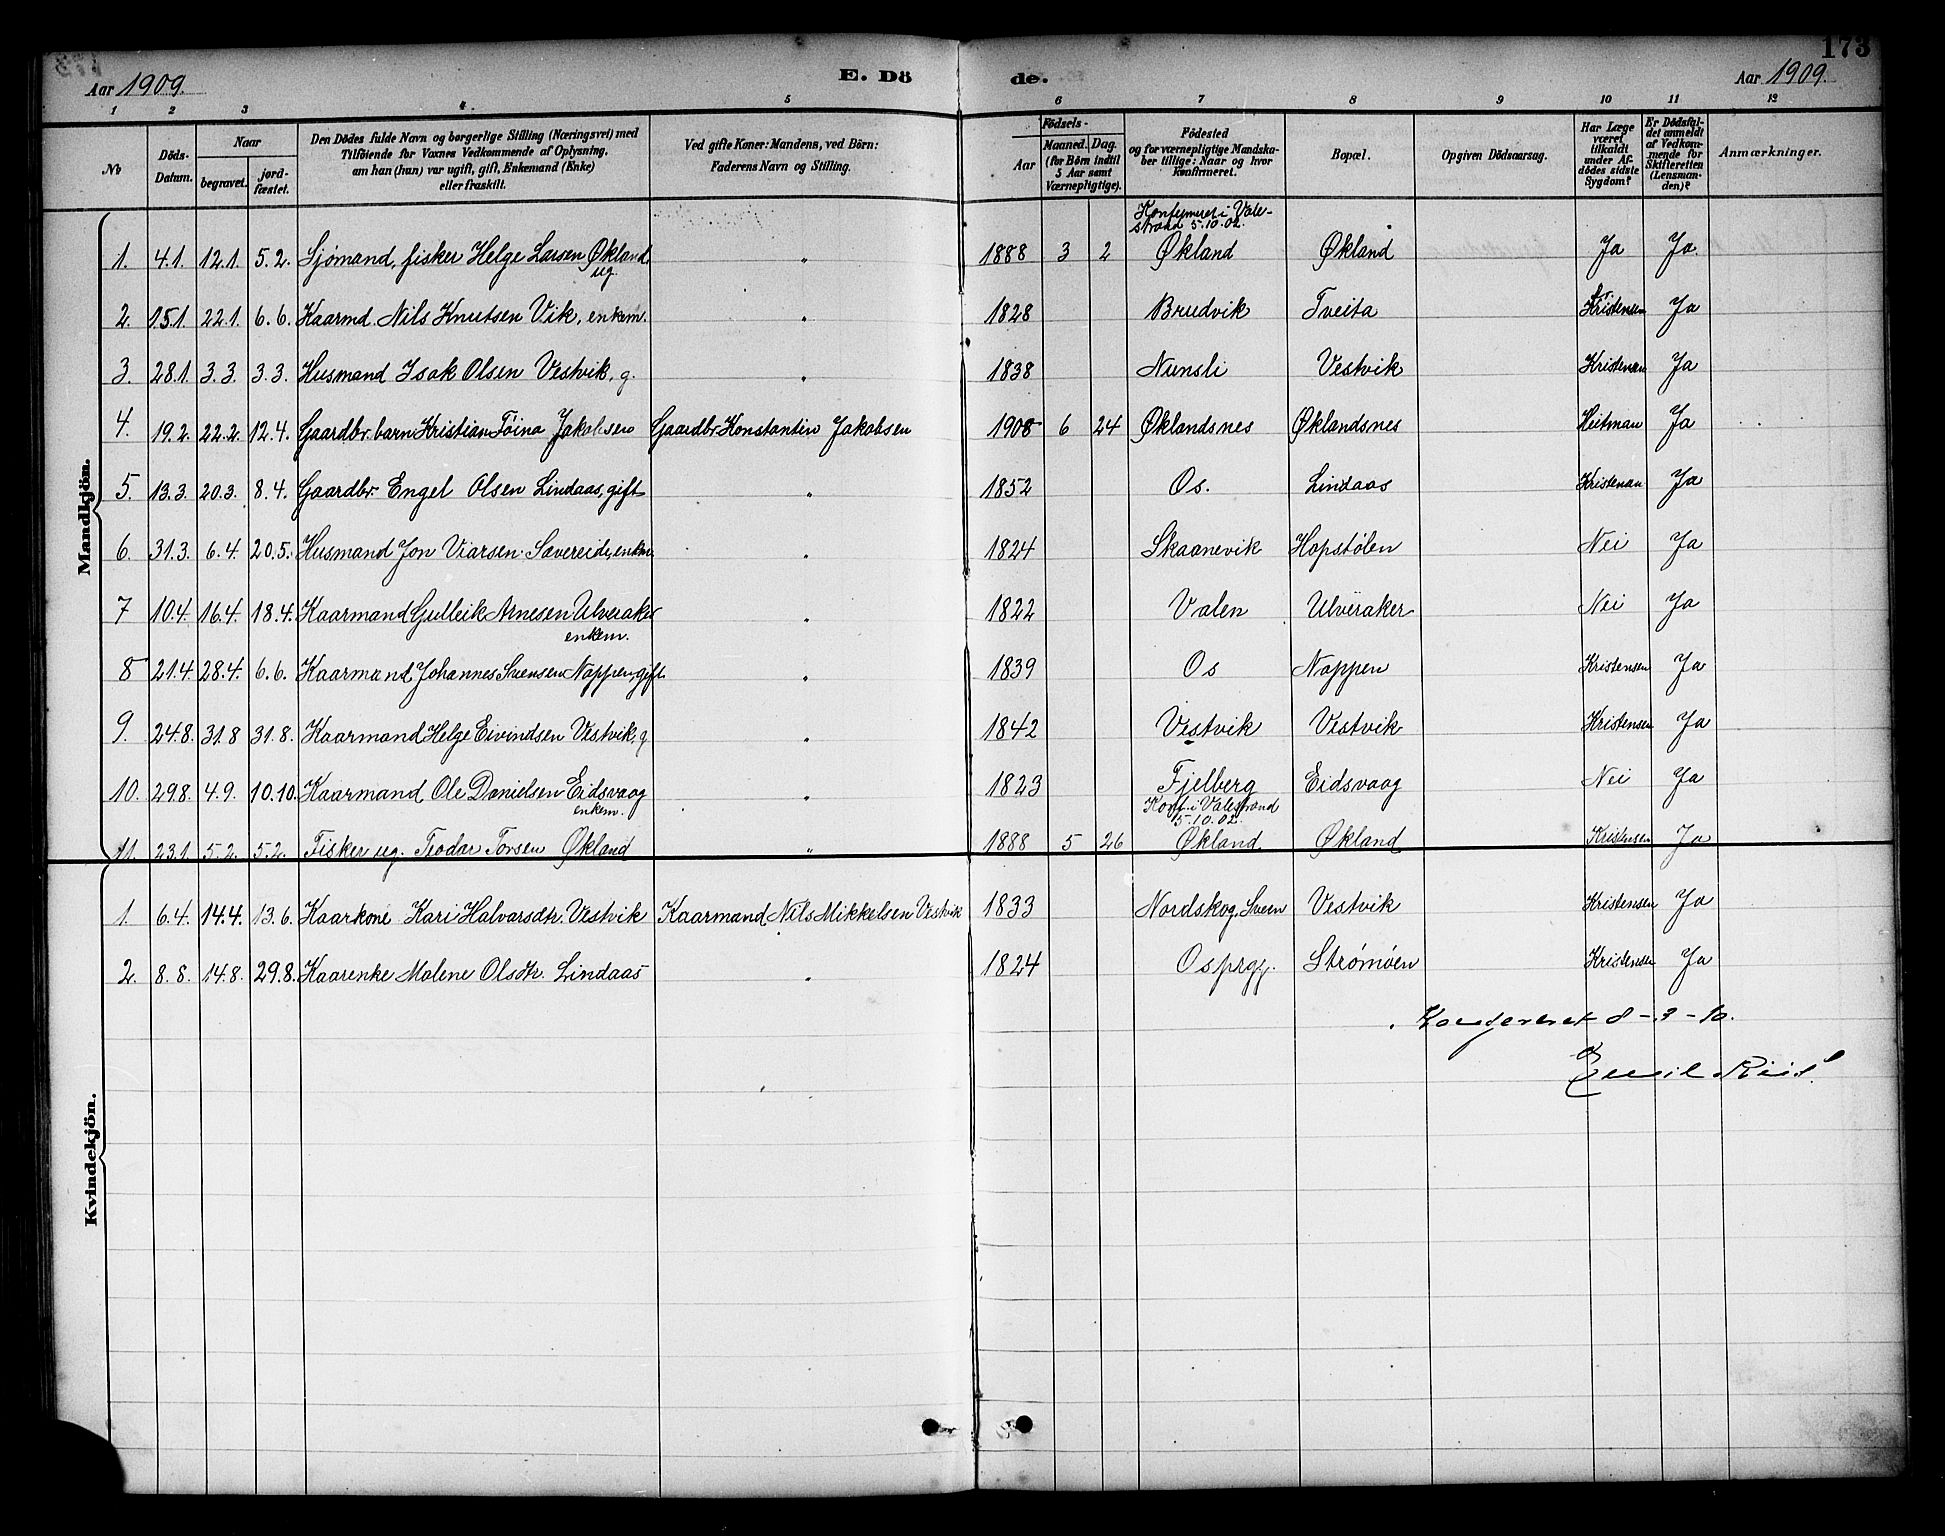 173
Aar 1909. E. Döde. Aar 1909.
1 2 3 4. 5 6 7 8 9 10 11 12
No
Döds-Datum.
Naar
begravet.
jord-fæstet.
Den Dödes fulde Navn og borgerlige Stilling (Næringsvei) med
Tilföiende for Voxnes Vedkommende af Oplysning,
om han (hun) var ugift, gift, Enkemand (Enke)
eller fraskilt.
Ved gifte Koner: Mandens, ved Börn:
Faderens Navn og Stilling.
Födsels-
Aar
Maaned. Dag.
(for Börn indtil
5 Aar samt
Værnepligtige).
Födested
og for værnepligtige Mandska-
ber tillige: Naar og hvor
Konfirmeret.
Bopæl.
Opgiven Dödsaarsag.
Har Læge
været
tilkaldt
under Af-
dödes sidste
Sygdom?
Er Dödsfal-
det anmeldt
af Vedkom-
mende for
Skifteretten
(Lensman-
den)?
Anmærkninger.
Mandkjön.
Konfirmeret i Vale-
strand 5.10.02.
1. 4.1. 12.1. 5.2. Sjømand, fisker Helge Larsen Økland " 1888 3 2 Økland Økland Ja Ja.
ug.
2. 15.1. 22.1. 6.6. Kaarmd. Nils Knutsen Vik, enkem. " 1828 Brudvik Tveita Kristensen Ja
3. 28.1. 3.3. 3.3. Husmand Isak Olsen Vestvik, g. " 1838 Nunsli Vestvik Kristensen Ja
4. 19.2. 22.2. 12.4. Gaardbr. barn Kristian Töina Jakobsen Gaardbr. Konstantin Jakobsen 1908 6 24 Øklandsnes Øklandsnes Heitman Ja
5. 13.3. 20.3. 8.4. Gaardbr. Engel Olsen Lindaas, gift " 1852 Os. Lindaas Kristensen Ja
6. 31.3. 6.4. 20.5. Husmand Jon Viarsen Sævereide, enkm. " 1824 Skaanevik Hopstølen Nei Ja
7 10.4. 16.4. 18.4. Kaarmand Gulleik Arnesen Ulveraker " 1822 Valen Ulveraker Nei Ja
enkem.
8 21.4 28.4. 6.6. Kaarmand Johannes Svensen Nappen, gift " 1839 Os Nappen Kristensen Ja
9. 24.8. 31.8 31.8. Kaarmand Helge Eivindsen Vestvik, g " 1842 Vestvik Vestvik Kristensen Ja
10. 29.8. 4.9. 10.10. Kaarmand Ole Danielsen Eidsvaag " 1823 Fjelberg Eidsvaag Nei Ja
enkem.
Konf. i Valestrand
5.10.02.
11. 23.1. 5.2. 5.2. Fisker ug. Teodar Torsen Økland " 1888 5 26 Økland Økland Kristensen Ja
Kvindekjön.
1. 6.4. 14.4. 13.6. Kaarkone Kari Halvarsdtr. Vestvik Kaarmand Nils Mikkelsen Vestvik 1833 Nordskog, Sveen Vestvik Kristensen Ja
2. 8.8. 14.8. 29.8. Kaarenke Malene Olsdtr. Lindaas " 1824 Os prgj. Strømøen Kristensen Ja
Konfereret 8-3-10.
Emil Riis.